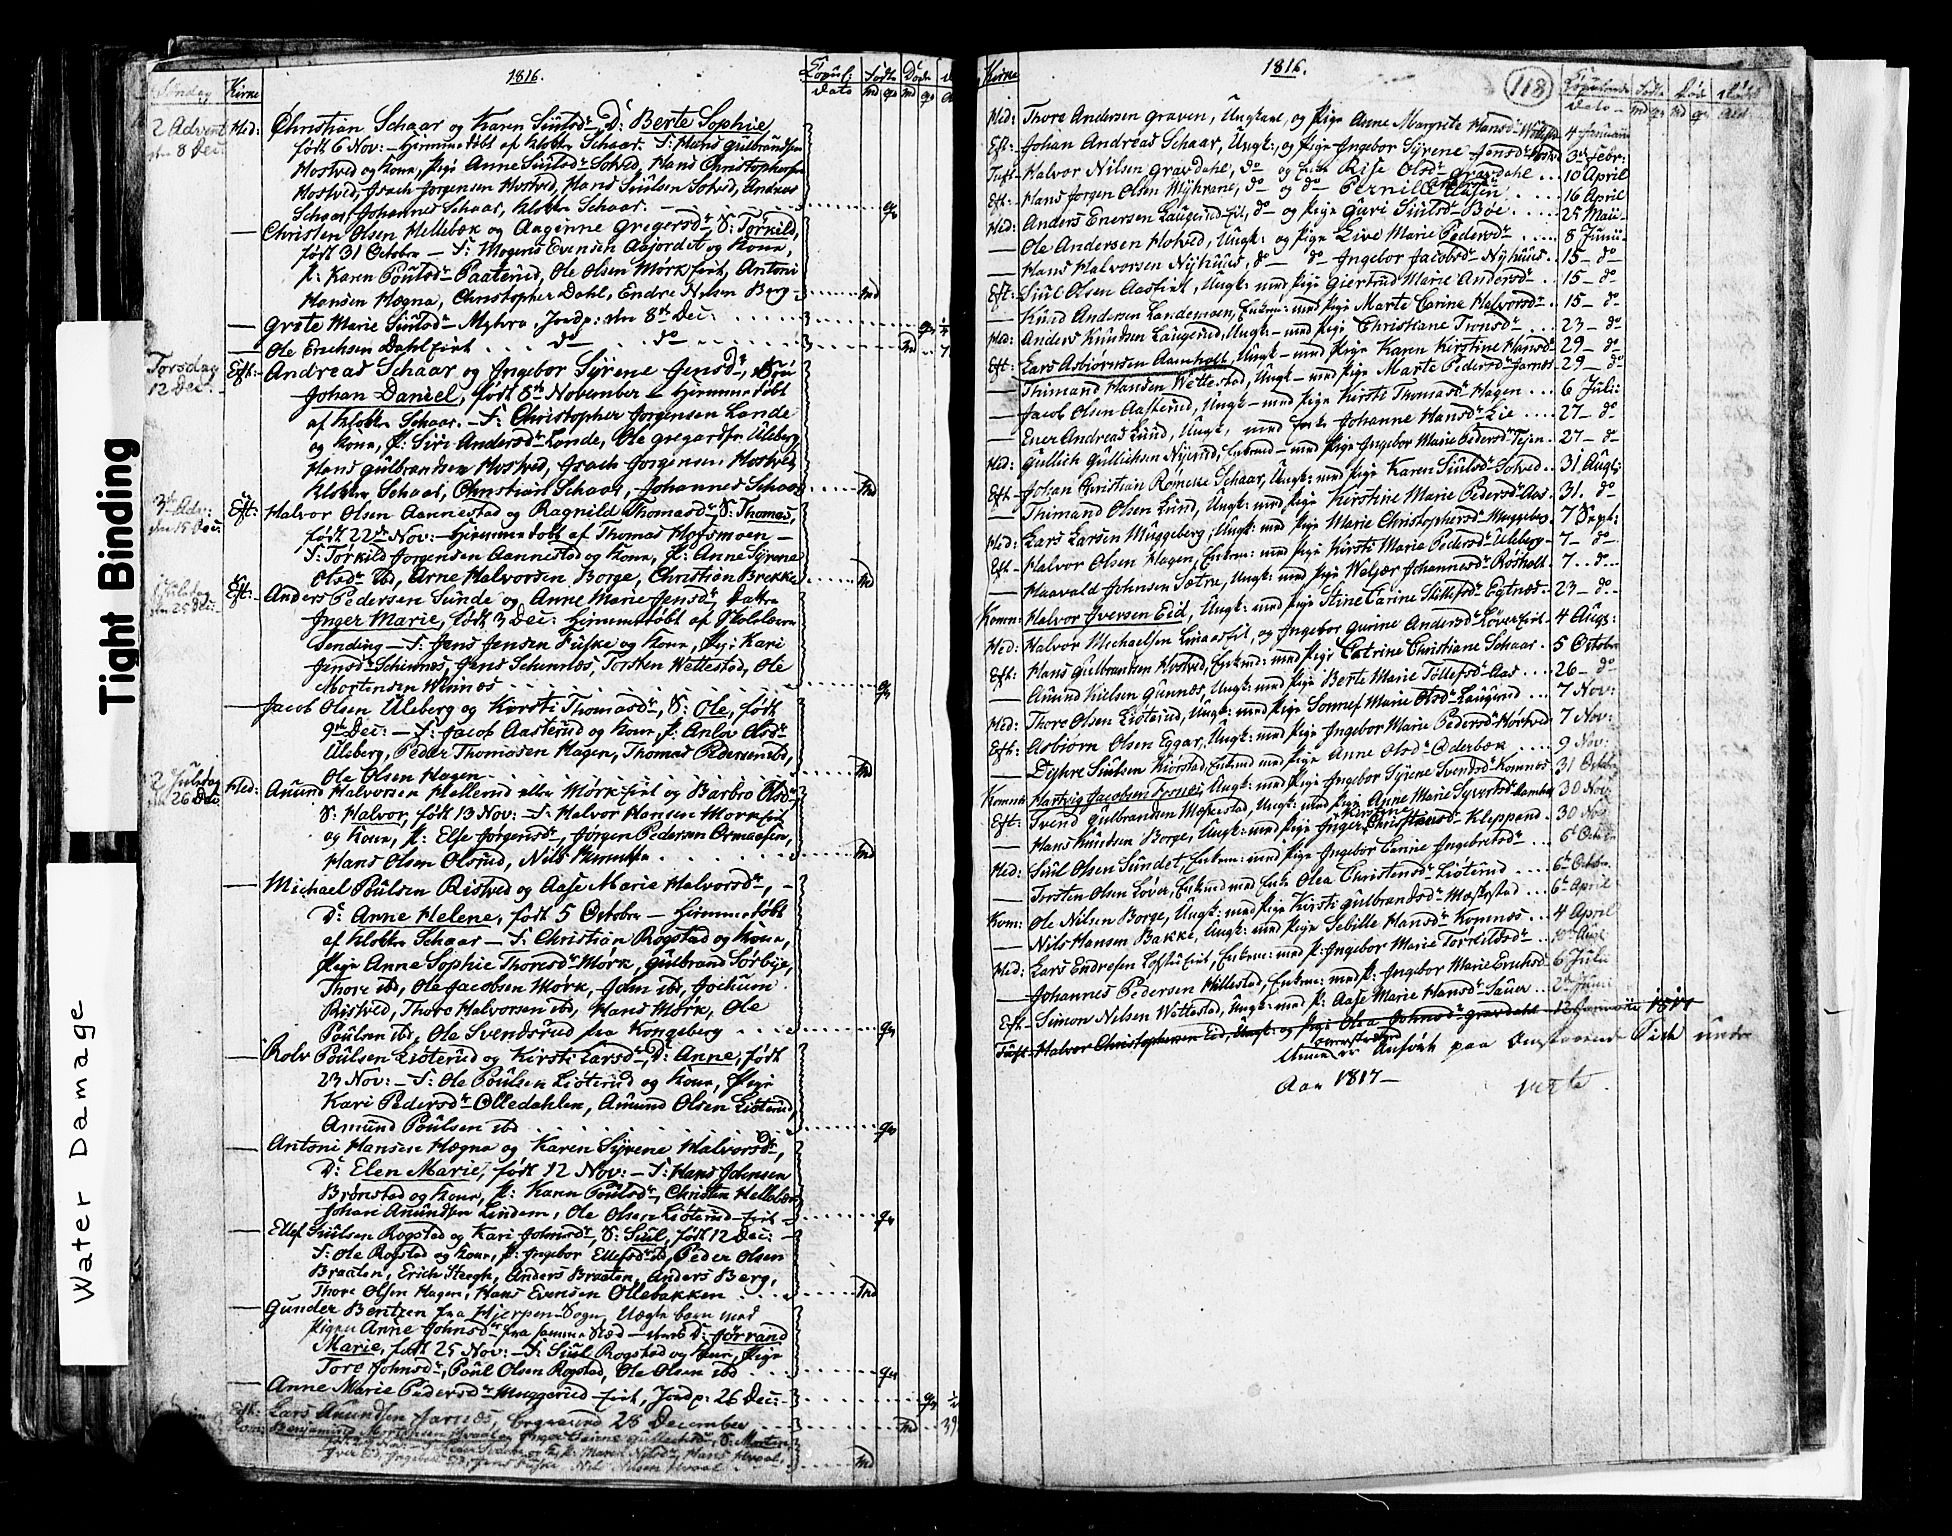 Tight Binding
Water Damage
Søndag Kirke 1816. Copul: dato Fødte Md Qv Døde Md Qv
2 Advent den 8 Dec: Hed: Christian Schaar og Karen Siulsdr D: Berte Sophie
født 6 Nov: – hjemmedøbt af Klokker Schaar. F: Hans Gulbrandsen
Hostved og Kone, Pige Anne Siulsdr Hotved, Hans Christophersen
Hostved, Isach Jorgensen Hostved, Hans Siulsen Hotved, Andreas
Schaar, Johannes Schaar, Klokker Schaar. Qv
Christen Olsen Hellebek og Aagenne Gregersdr S: Torkild,
født 31 Octobre – F: Mogens Evensen Aasjordet og Kone,
P: Karen Poulsdr Paaterud, Ole Olsen Mørk Eiet, Antoni
Hansen Hægna, Christopher Dahl, Endre Nilsen Berg Md
Grete Marie Siulsdr Myhra, Jordp: den 8de Dec: Qv
Ole Erichsen Dahl Eiet do do Md
Torsdag 12 Dec: Eft: Andreas Schaar og Ingebor Syrene Jensdr,
Johan Daniel, født 8de November – hjemmedøbt
af Klokker Schaar. – F: Christopher Jorgensen Lande
og Kone, P: Siri Andersdr Lande, Ole Gregersen Uleberg
Hans Gulbrandsen Hostved, Isach Jorgensen Hostved
Klokker Schaar, Christian Schaar, Johannes Schaar Md
3de Adv: den 15 Dec: Eft: Halvor Olsen Aannestad og Ragnild Thomasdr S: Thomas,
født 22de Nov: – hjemmedøbt af Thomas Moysmoen –
F: Torkild Jorgensen Aannestad og Kone, P: Anne Syrene
Olsdr ibd, Arne Halvorsen Borge, Christian Brekke Md
1 Juledag den 25 Dec: Eft: Anders Pedersen Sunde og Anne Marie Jensdr, Datter
Inger Marie, født 3 Dec: hjemmedøbt af Skolelærer
Sending – F: Jens Jensen Fiske og Kone, Pige Kari
Jensdr Schinnes, Jens Schinnes, Torsten Wettestad, Ole
Mortensen Winnes Qv
Jacob Olsen Uleberg og Kirsti Thomasdr, S: Ole, født
9de Dec: – F: Jacob Aasterud og Kone, P: Anlov Olsdr
Uleberg, Peder Thomasen Hagen, Thomas Pedersen ibd,
Ole Olsen Hagen Md
2 Juledag den 26 Dec: Hed: Amund Halvorsen Hellerud eller Mørk Eiet og Barbro Olsdr
S: Halvor, født 13 Nov: – F: Halvor Hansen Mork Eiet
og Kone, P: Else Jørgensdr, Jørgen Pedersen Ormaasen,
Hans Olsen Olsrud, Nils Md
Michael Poulsen Ristved og Aase Marie Halvorsdr, –
D: Anne Helene, født 5 Octobre – hjemmedøbt
af Klokker Schaar – F: Christian Rogstad og Kone,
Pige Anne Sophie Thoresdr Mørk, Gulbrand Sørbye,
Thore ibd, Ole Jacobsen Mørk, John ibd, Jochum
Ristved, Thore Halvorsen ibd, Hans Mørk, Ole
Poulsen ibd, Ole Svendsrud fra Kongsberg Qv
Rolv Poulsen Lioterud og Kirsti Larsdr, D: Anne, født
23 Nov: – F: Ole Poulsen Lioterud og Kone, Pige
Kari Pedersdr Olledahlen, Amund Olsen Lioterud,
Amund Poulsen ibd Qv
Antoni Hansen Hægna og Karen Syrene Halvorsdr,
D: Elen Marie, født 12 Nov: – F: Hans Johnsen
Brønstad og Kone, P: Karen Poulsdr, Christen Hellebæk
Johan Amundsen Lindem, Ole Olsen Lioterud Eiet Qv
Ellef Siulsen Rogstad og Kari Johnsdr, S: Siul, født 12 Dec: –
F: Ole Rogstad og Kone, P: Ingebor Ellefsdr ibd, Peder Olsen
Braaten, Erich Steegh, Anders Braaten, Anders Berg,
Thore Olsen Hagen, Hans Evensen Ollebakken Md
Gunder Bentzen fra Hjerpen Sogn, Uægte barn med
Pigen Anne Johnsdr fra samme Sted – deres D: Jorrand
Marie, født 25 Nov: – F: Siul Rogstad og Kone, Pige
Tore Johnsdr, Poul Olsen Rogstad, Ole Olsen ibd Qv
Anne Marie Pedersdr Muggerud Eiet, Jordp: 26 Dec: Qv
Eft: Lars Amundsen Jarnes, begraved 28 December Md 39
Kom: Benjamin Mortensen og Inger S: Morten,
Nov: P: Maren Nilsdr, Hans
Jens Fiske, Nils Nilsen Md
Kirke 1816. 118 Copulerede Dato Fødte Md Qv Døde Md Qv
Hed: Thore Andersen Graven, Ungkarl, og Pige Anne Margrete Hansdr 4 Januari
Eft: Johan Andreas Schaar, Ungk:, og Pige Ingebor Syrene Jensdr 3de Febr:
Tuft Halvor Nilsen Gravdahl, do og Enke Rise Olsdr Gravdahl 10 April
Eft: Hans Jorgen Olsen Myhrane, do og do Pernille 16 April
Hed: Anders Enersen Laugerud Eiet, do og Pige Guri Siulsdr Bøe 25 Mai
Ole Andersen Hotved, Ungk: og Pige Live Marie Pedersdr 8 Junii
Hans Halvorsen Nyhuus, do do Ingebor Jacobsdr Nyhuus 15 – do
Eft: Siul Olsen Aaseiet, Ungk: med Pige Giertrud Marie Andersdr 15 – do
Knud Andersen Landemoen, Enkem: med Pige Marte Carine Halvorsdr 15 – do
Hed: Anders Knudsen Laugerud, Ungk: – med Pige Christiane Tronsdr 23 – do
Eft: Lars Asbiørnsen Aamholt, Ungk – med Pige Karen Kirstine Hansdr 29 – do
Thimand Hansen Wettestad, Ungk – med Pige Marte Pedersdr Jarnes 29 – do
Jacob Olsen Aasterud, Ungk – med Pige Kirsti Thomasdr Hagen 6 Juli:
Ener Andreas Lund, Ungk, med Enke Johanne Hansdr Lie 27 – do
Hed: Gullich Gullichsen Nyerud, Enkemd – med Pige Ingebor Marie Pedersdr 27 – do
Eft: Johan Christian Römcke Schaar, Ungk: med Pige Karen Siulsdr Hotved 31 Aug:
Thimand Olsen Lund, Ungk: med Pige Kirstine Marie Pedersdr Aas 31. do
Hed: Lars Larsen Muggeberg, Ungk: med Pige Marie Christophersdr Muggeberg 7 Sept:
Eft Halvor Olsen Hagen, Enkem: med Pige Kirsti Marie Pedersdr Uleberg 7 – do
Haavald Johnsen Sætre, Ungk: med Pige Welgær Johannesdr Røsholt 7 – do
Komn: Halvor Iversen Eid, Ungk: med Pige Stine Carine Stillefsdr 23 – do
Hed: Halvor Michaelsen Linaaseiet, og Ingebor Gurine Andersdr Løver Eiet 4 Augs:
Eft: Hans Gulbrandsen Hostved, Enkemd: med Pige Catrine Christiane Schaar 5 Octobre
Amund Nielsen Gunnes, Ungk: med Pige Berte Marie Tollefsdr Aas 26 – do
Hed: Thore Olsen Lioterud, Ungk: med Pige Sonnef Marie Olsdr Laugerud 7 Nov:
Eft: Asbiørn Olsen Eggar, Ungk: med Pige Ingebor Marie Pedersdr Hostved 7 Nov:
Dyhre Siulsen Kiorstad, Enkemd med Pige Anne Olsdr Oderbæk 9 Nov:
Komn: Hartvig Jacobsen Trones, Ungk: med Pige Ingebor Syrene Svendsdr Komnes 31 Octobre
Eft: Svend Gulbrandsen Mækestad, Ungk: med Pige Anne Marie Syversdr 30 Nov:
Hans Knudsen Borge, Ungk: med Pige Inger Christensdr Kleppend 30 Nov
Hed: Siul Olsen Sundet, Enkem: med Pige Ingebor Carine Ingebretsdr 6te Octobre
Torsten Olsen Løver, Enkmd med Enke Olea Christensdr Lioterud 6te Octobre
Kom: Ole Nilsen Borge, Ungk: med Pige Kirsti Gulbrandsdr Mækestad 6te April
Nils Hansen Bakke, Ungk: med Pige Sebille Hansdr Komnes 4 April
Hed: Lars Endresen Loftu Eiet, Enkem: med P: Ingebor Marie Torkildsdr Aug
Johannes Pedersen Hillestad, Enkem: med P: Ingebor Marie Erichsdr 6 Julii
Eft: Simon Nilsen Wettestad, Ungk: med P: Aase Marie Hansdr Sauer Junii
Tuft Halvor Christophersen Eid, Ungk: og Pige Olea Johnsdr Gravdahl 12 Januarii 1817
Anført paa Omstaaende Side under
Aar 1817 –
verte